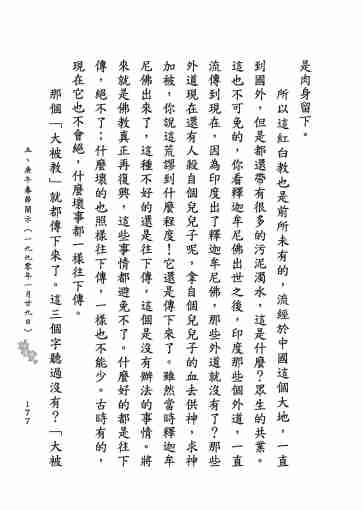 是肉身留下。
所以這紅白教也是前所未有的，流經於中國這個大地，一直
到國外，但是都還帶有很多的污泥濁水，這是什麼？眾生的共業。
這也不可免的，你看釋迦牟尼佛出世之後，印度那些個外道，一直
流傳到現在，因為印度出了釋迦牟尼佛，那些外道就沒有了？那些
外道現在還有人殺自個兒兒子呢，拿自個兒兒子的血去供神，求神
加被，你說這荒謬到什麼程度！它還是傳下來了。雖然當時釋迦牟
尼佛出來了，這種不好的還是往下傳，這個是沒有辦法的事情。將
來就是佛教真正再復興，這些事情都避免不了。什麼好的都是往下
傳，絕不了；什麼壞的也照樣往下傳，一樣也不能少。古時有的，
現在它也不會絕，什麼壞事都一樣往下傳。
那個「大被教」就都傳下來了。這三個字聽過沒有？「大被
五、庚午春節開示（一九九零年一月廿九日）
177